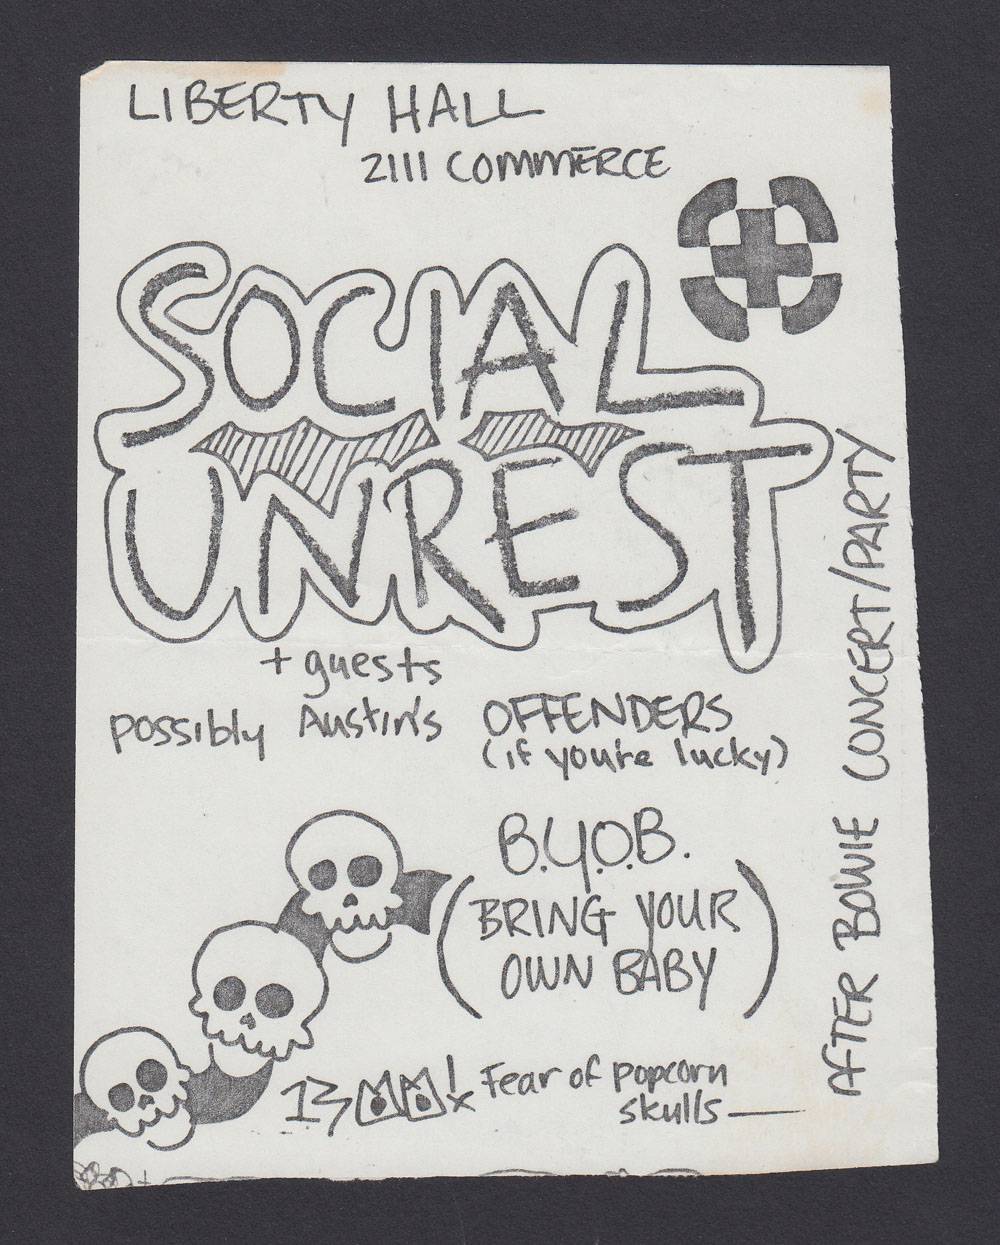 LIBERTY HALL
2111 COMMERCE
SOCIAL
UNREST
+ guests
possibly Austin's OFFENDERS
(if you're lucky)
B.Y.O.B.
(BRING YOUR
OWN BABY)
Fear of popcorn
skulls
AFTER BOWIE CONCERT/PARTY